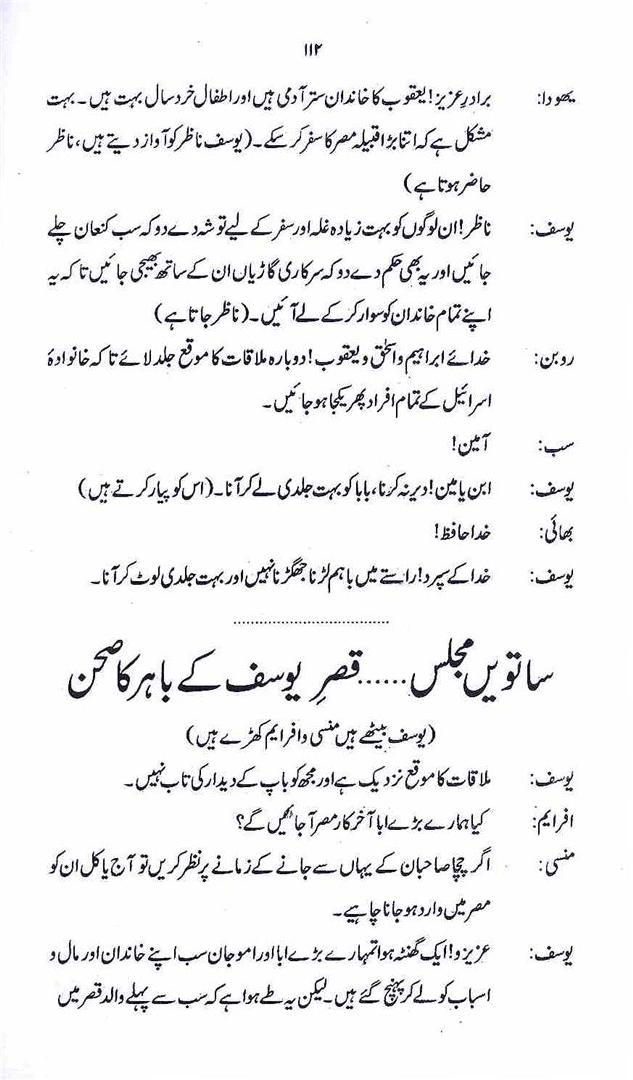 ۱۱۲
یہودا: برادرِ عزیز! یعقوب کا خاندان ستر آدمی ہیں اور اطفال خردسال بہت ہیں۔ بہت
مشکل ہے کہ اتنا بڑا قبیلہ مصر کا سفر کر سکے۔ (یوسف ناظر کو آواز دیتے ہیں، ناظر
حاضر ہوتا ہے)
یوسف: ناظر! ان لوگوں کو بہت زیادہ غلہ اور سفر کے لیے توشہ دے دو کہ سب کنعان چلے
جائیں اور یہ بھی حکم دے دو کہ سرکاری گاڑیاں ان کے ساتھ بھیجی جائیں تاکہ یہ
اپنے تمام خاندان کو سوار کر کے لے آئیں۔ (ناظر جاتا ہے)
روبن: خدائے ابراہیم و اسحٰق و یعقوب! دوبارہ ملاقات کا موقع جلد لائے تاکہ خانوادۂ
اسرائیل کے تمام افراد پھر یکجا ہو جائیں۔
سب: آمین!
یوسف: ابن یامین! دیر نہ کرنا، بابا کو بہت جلدی لے کر آنا۔ (اس کو پیار کرتے ہیں)
بھائی: خدا حافظ!
یوسف: خدا کے سپرد! راستے میں باہم لڑنا جھگڑنا نہیں اور بہت جلدی لوٹ کر آنا۔
ساتویں مجلس ...... قصرِ یوسف کے باہر کا صحن
(یوسف بیٹھے ہیں منسی و افرایم کھڑے ہیں)
یوسف: ملاقات کا موقع نزدیک ہے اور مجھ کو باپ کے دیدار کی تاب نہیں۔
افرایم: کیا ہمارے بڑے ابا آخر کار مصر آ جائیں گے؟
منسی: اگر چچا صاحبان کے یہاں سے جانے کے زمانے پر نظر کریں تو آج یا کل ان کو
مصر میں وارد ہو جانا چاہیے۔
یوسف: عزیزو! ایک گھنٹہ ہوا تمہارے بڑے ابا اور اموجان سب اپنے خاندان اور مال و
اسباب کو لے کر پہنچ گئے ہیں۔ لیکن یہ طے ہوا ہے کہ سب سے پہلے والد قصر میں